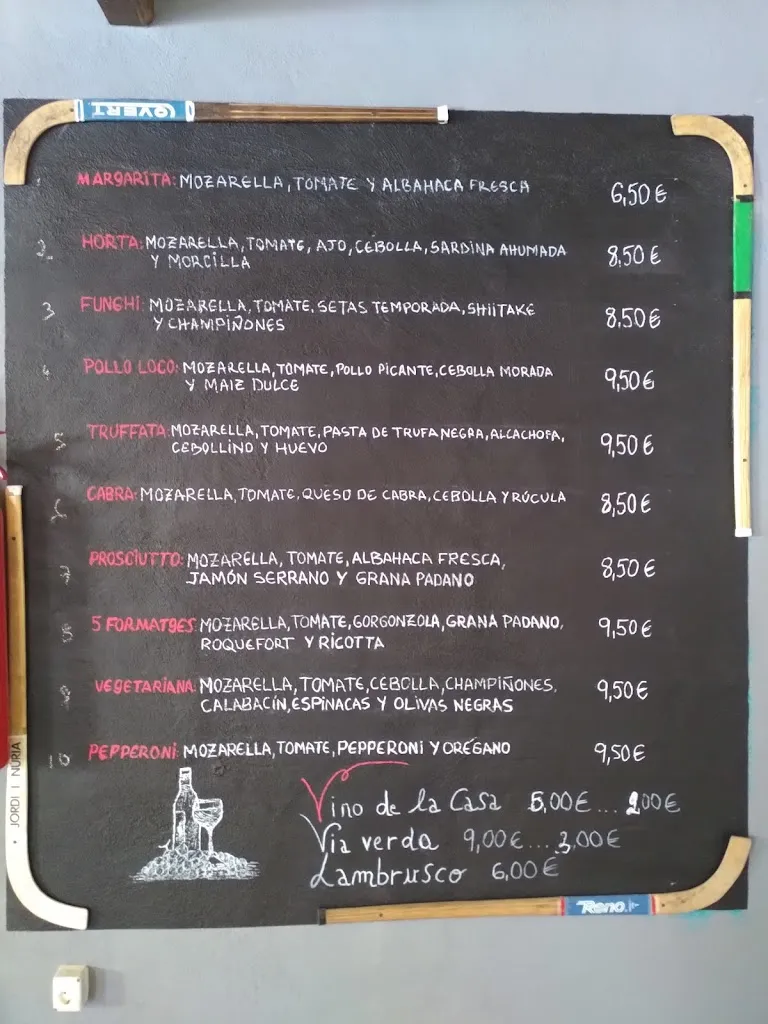 OVERT
MARGARITA: MOZARELLA, TOMATE Y ALBAHACA FRESCA 6,50 €
2 HORTA: MOZARELLA, TOMATE, AJO, CEBOLLA, SARDINA AHUMADA 8,50 €
Y MORCILLA
3 FUNGHI: MOZARELLA, TOMATE, SETAS TEMPORADA, SHIITAKE 8,50 €
Y CHAMPIÑONES
4 POLLO LOCO: MOZARELLA, TOMATE, POLLO PICANTE, CEBOLLA MORADA 9,50 €
Y MAIZ DULCE
5 TRUFFATA: MOZARELLA, TOMATE, PASTA DE TRUFA NEGRA, ALCACHOFA, 9,50 €
CEBOLLINO Y HUEVO
CABRA: MOZARELLA, TOMATE, QUESO DE CABRA, CEBOLLA Y RÚCULA 8,50 €
7 PROSCIUTTO: MOZARELLA, TOMATE, ALBAHACA FRESCA, 8,50 €
JAMÓN SERRANO Y GRANA PADANO
5 FORMATGES: MOZARELLA, TOMATE, GORGONZOLA, GRANA PADANO, 9,50 €
ROQUEFORT Y RICOTTA
VEGETARIANA: MOZARELLA, TOMATE, CEBOLLA, CHAMPIÑONES, 9,50 €
CALABACÍN, ESPINACAS Y OLIVAS NEGRAS
10 PEPPERONI: MOZARELLA, TOMATE, PEPPERONI Y ORÉGANO 9,50 €
Vino de la Casa 5,00 € ... 2,00 €
Via verda 9,00 € ... 3,00 €
Lambrusco 6,00 €
JORDI I NÚRIA
Reno